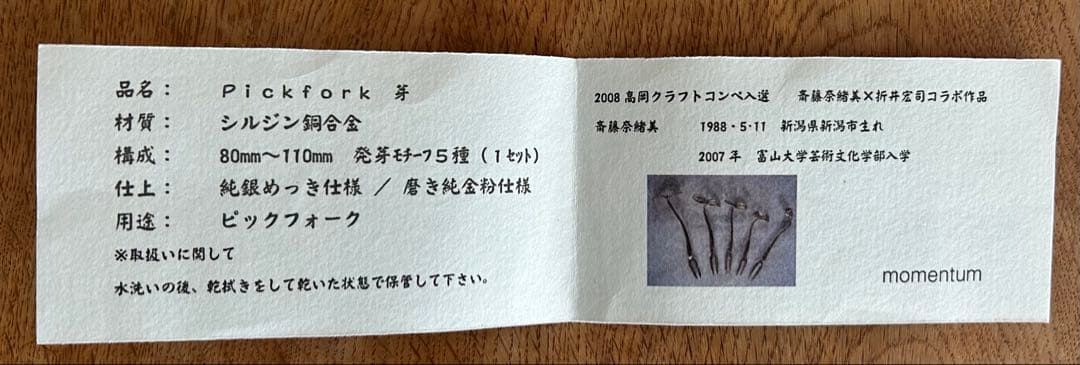 品名： Ｐｉｃｋｆｏｒｋ 芽
材質： シルジン銅合金
構成： 80mm～110mm 発芽ﾓﾁｰﾌ５種（１ｾｯﾄ）
仕上： 純銀めっき仕様 ／ 磨き純金粉仕様
用途： ピックフォーク
※取扱いに関して
水洗いの後、乾拭きをして乾いた状態で保管して下さい。
2008 高岡クラフトコンペ入選 斎藤奈緒美×折井宏司コラボ作品
斎藤奈緒美 1988・5・11 新潟県新潟市生れ
2007 年 富山大学芸術文化学部入学
momentum